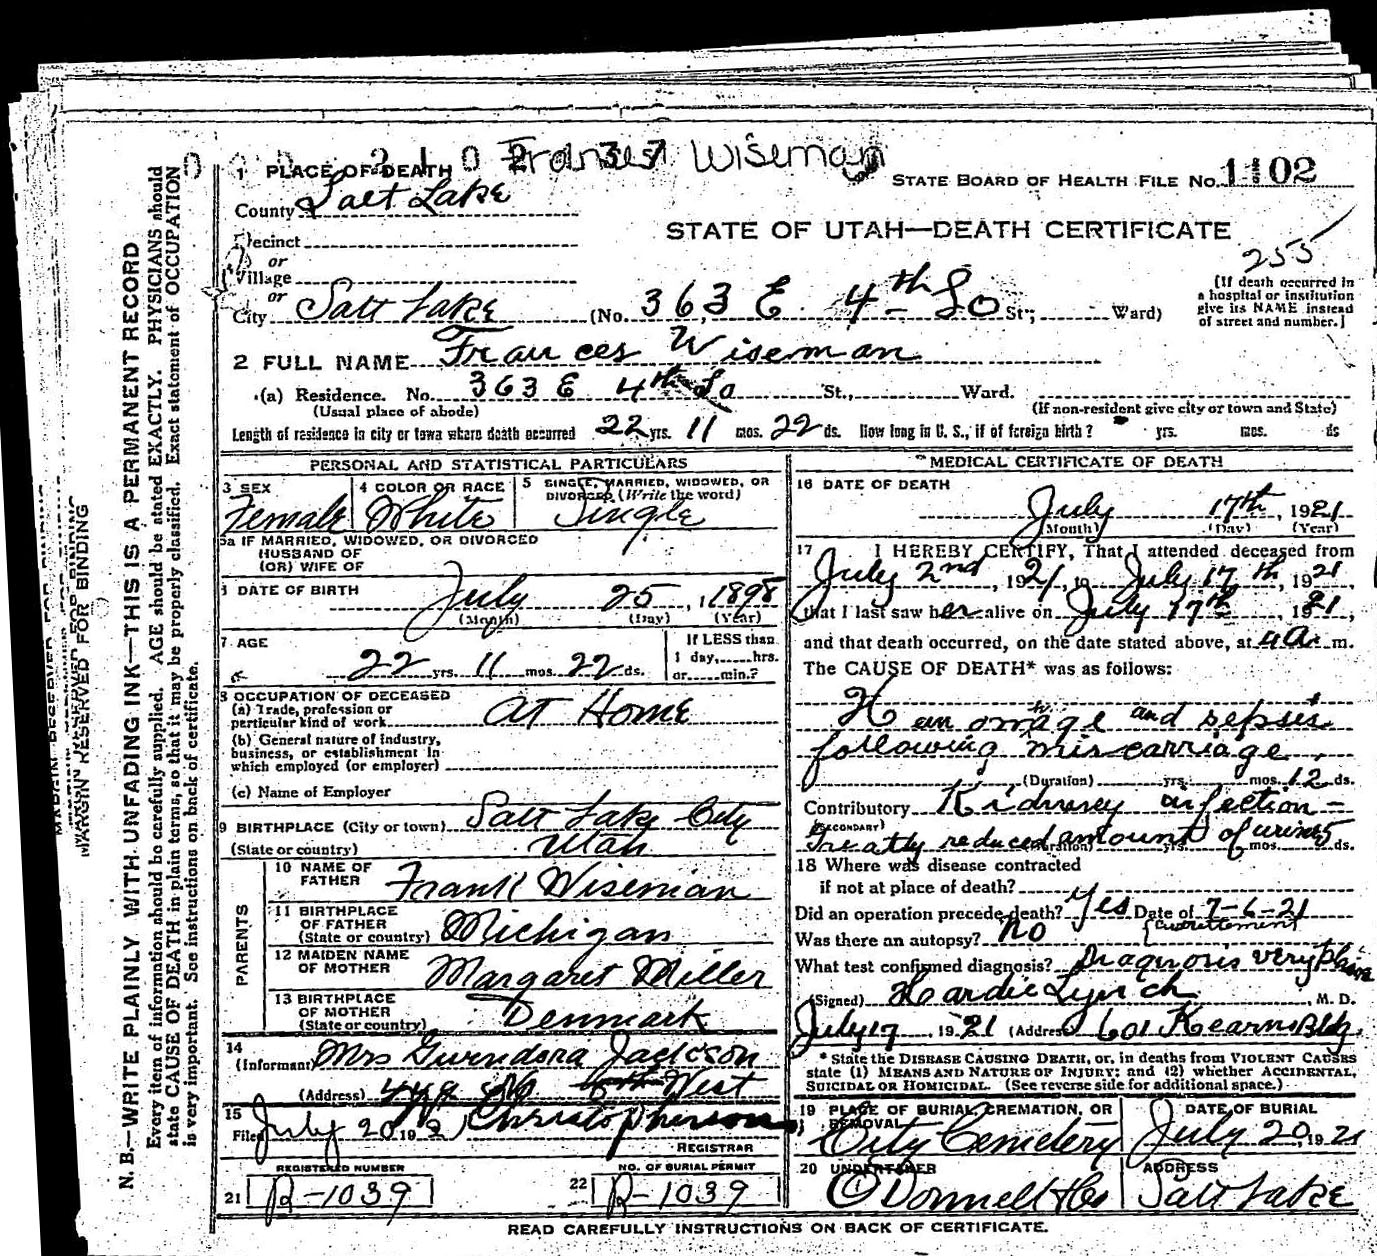 Frances Wiseman
1 PLACE OF DEATH
STATE BOARD OF HEALTH FILE No. 1102
County Salt Lake
STATE OF UTAH—DEATH CERTIFICATE
Precinct
255
or
Village
or
City Salt Lake (No. 363 E 4th So St; Ward)
[If death occurred in
a hospital or institution
give its NAME instead
of street and number.]
2 FULL NAME Frances Wiseman
(a) Residence. No. 363 E 4th So St., Ward.
(Usual place of abode) (If non-resident give city or town and State)
Length of residence in city or town where death occurred 22 yrs. 11 mos. 22 ds. How long in U. S., if of foreign birth? yrs. mos. ds
PERSONAL AND STATISTICAL PARTICULARS
3 SEX
Female
4 COLOR OR RACE
White
5 SINGLE, MARRIED, WIDOWED, OR
DIVORCED (Write the word)
Single
5a IF MARRIED, WIDOWED, OR DIVORCED
HUSBAND OF
(OR) WIFE OF
DATE OF BIRTH July 25, 1898
(Month) (Day) (Year)
7 AGE
22 yrs. 11 mos. 22 ds.
If LESS than
1 day, hrs.
or min.?
8 OCCUPATION OF DECEASED
(a) Trade, profession or
particular kind of work At Home
(b) General nature of industry,
business, or establishment in
which employed (or employer)
(c) Name of Employer
9 BIRTHPLACE (City or town) Salt Lake City
(State or country) Utah
PARENTS
10 NAME OF
FATHER Frank Wiseman
11 BIRTHPLACE
OF FATHER
(State or country) Michigan
12 MAIDEN NAME
OF MOTHER Margaret Miller
13 BIRTHPLACE
OF MOTHER
(State or country) Denmark
14
(Informant) Mrs Gwendora Jackson
(Address) West
15
Filed July 20 192 Christopherson
REGISTRAR
REGISTERED NUMBER
21 R-1039
NO. OF BURIAL PERMIT
22 R-1039
MEDICAL CERTIFICATE OF DEATH
16 DATE OF DEATH
July 17th, 1921
(Month) (Day) (Year)
17 I HEREBY CERTIFY, That I attended deceased from
July 2nd, 1921, to July 17th, 1921,
that I last saw her alive on July 17th, 1921,
and that death occurred, on the date stated above, at 4 a. m.
The CAUSE OF DEATH* was as follows:
and sepsis
following miscarriage
(Duration) yrs. mos. 12 ds.
Contributory Kidney infection -
(SECONDARY)
Greatly reduced amount of urine 5 ds.
18 Where was disease contracted
if not at place of death?
Did an operation precede death? Yes Date of 7-6-21
(Curettement)
Was there an autopsy? No
What test confirmed diagnosis? Diagnosis very plain
(Signed) Hardie Lynch, M. D.
July 17 1921 (Address 601 Kearns Bldg.
* State the DISEASE CAUSING DEATH, or, in deaths from VIOLENT CAUSES
state (1) MEANS AND NATURE OF INJURY; and (2) whether ACCIDENTAL,
SUICIDAL OR HOMICIDAL. (See reverse side for additional space.)
19 PLACE OF BURIAL, CREMATION, OR
REMOVAL
City Cemetery
DATE OF BURIAL
July 20, 1921
20 UNDERTAKER
O'Donnell & Co
ADDRESS
Salt Lake
READ CAREFULLY INSTRUCTIONS ON BACK OF CERTIFICATE.
MARGIN RESERVED FOR BINDING
N. B.—WRITE PLAINLY WITH UNFADING INK—THIS IS A PERMANENT RECORD
Every item of information should be carefully supplied. AGE should be stated EXACTLY. PHYSICIANS should
state CAUSE OF DEATH in plain terms, so that it may be properly classified. Exact statement of OCCUPATION
is very important. See instructions on back of certificate.